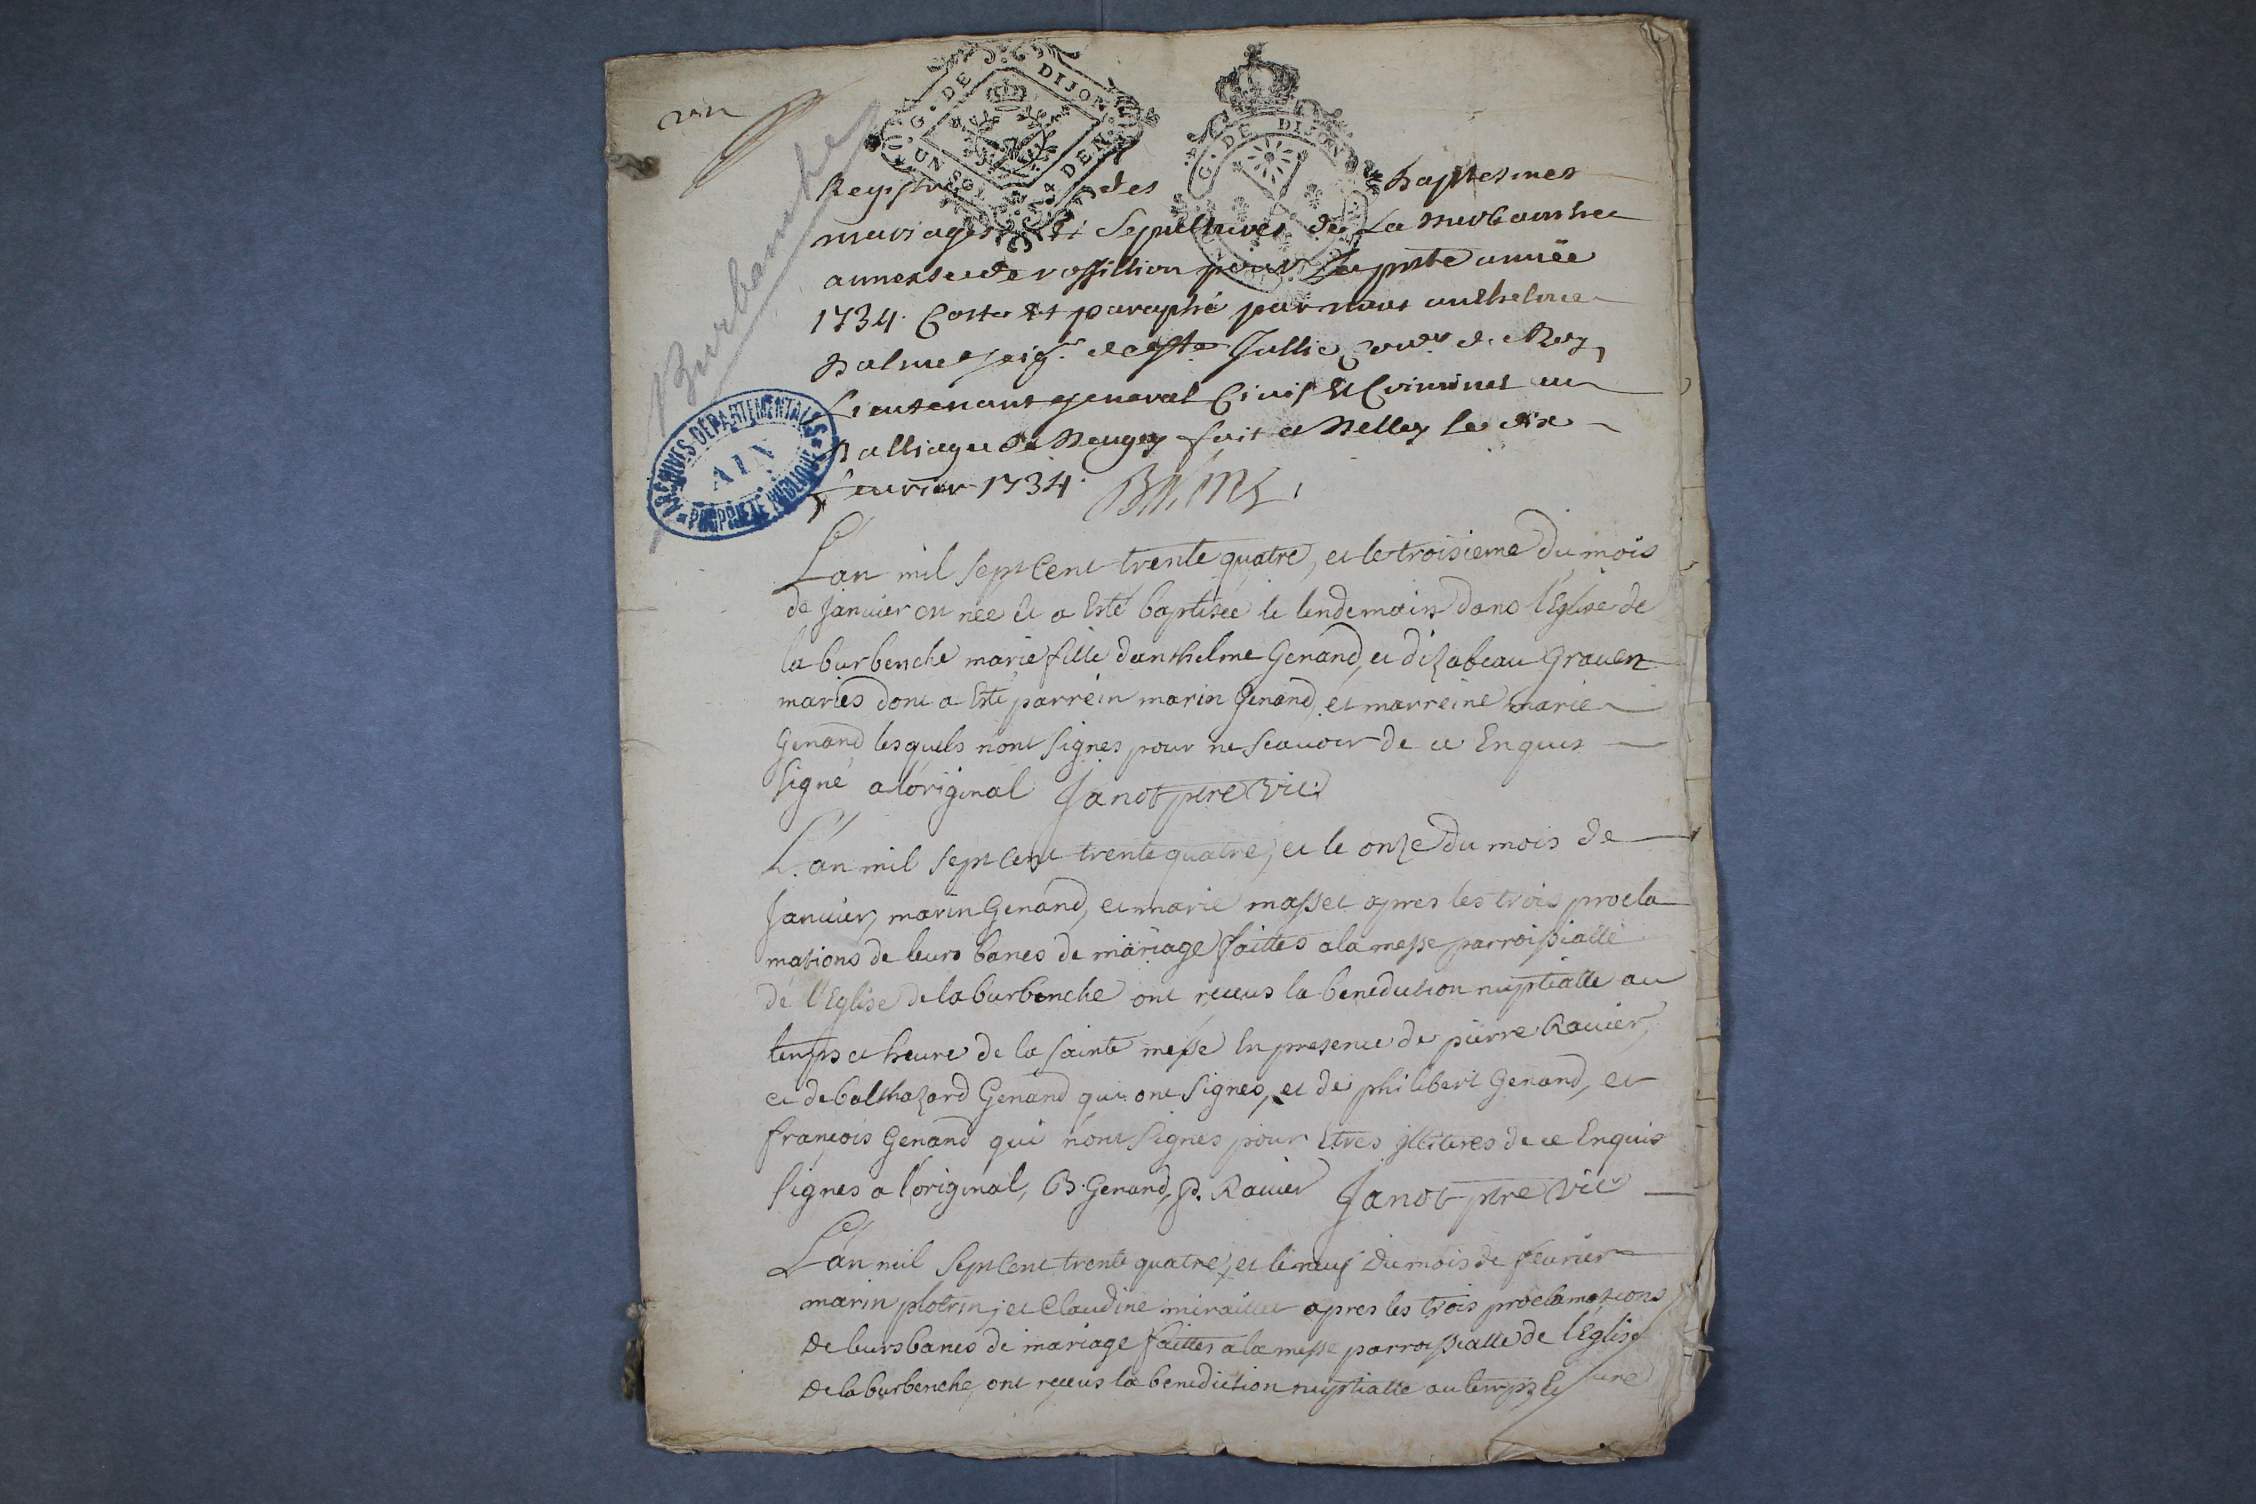 G. DE DIJON
UN SOL 4 DEN.
G. DE DIJON
Burbanche
ARCHIVES DEPARTEMENTALES
AIN
PROPRIETE PUBLIQUE
Registre des Baptesmes
mariages et Sepultures de La Burbanche
annexe de rossillion pour La pnte année
1734. Cotté et paraphé par nous anthelme
Balme seigr de Ste Jullie Conser du Roy
Lieutenant general Civil et Criminel au
Balliage de Beugey fait a Belley le dix
feuvrier 1734. Balme
L'an mil sept cent trente quatre, et le troisieme du mois
de Janvier est née et a esté baptisée le lendemain dans l'Eglise de
la burbenche marie fille d'anthelme Genand, et d'izabeau Graven
maries dont a esté parrein marin Genand, et marreine marie
Genand lesquels n'ont signes pour ne scavoir de ce Enquis
signé a l'original Janot ptre vic.
L'an mil sept cent trente quatre, et le onze du mois de
Janvier, marin Genand, et marie masset apres les trois procla
mations de leurs banes de mariage faittes a la messe parroissialle
de l'Eglise de la burbenche ont receus la benediction nuptialle au
temps et heure de la sainte messe en presence de pierre Ravier,
et de balthazard Genand qui ont signes, et de philibert Genand, et
françois Genand qui n'ont signes pour etres illiteres de ce Enquis
signes a l'original, B. Genand, P. Ravier Janot ptre vic
L'an mil sept cent trente quatre, et le neuf du mois de fevrier
marin plotrin, et Claudine miraillet apres les trois proclamations
de leurs banes de mariage faittes a la messe parroissialle de l'Eglise
de la burbenche, ont receus la benediction nuptialle au temps et